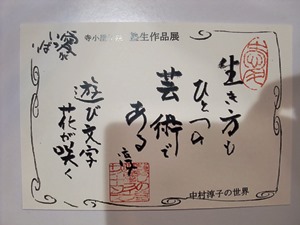 寺小屋
塾生作品展
愛が
いっぱい
生き方も
ひとつの
芸術で
ある
遊び文字
花が咲く
中村淳子の世界